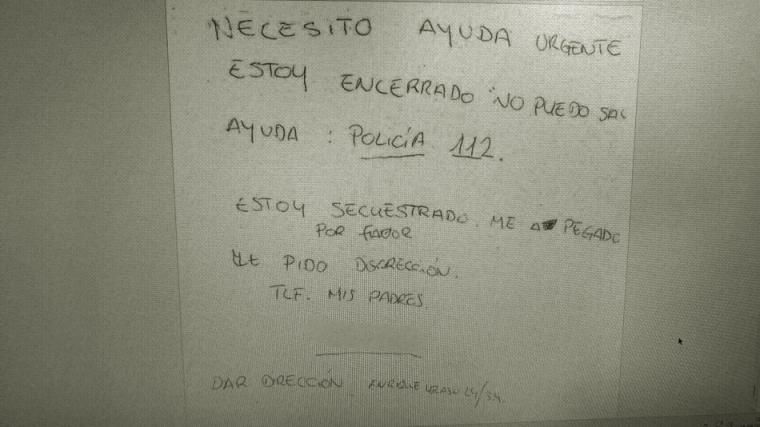 NECESITO AYUDA URGENTE
ESTOY ENCERRADO NO PUEDO SAL
AYUDA : POLICÍA 112.
ESTOY SECUESTRADO. ME A PEGADO
POR FAVOR
LE PIDO DISCRECCIÓN.
TLF. MIS PADRES
DAR DIRECCIÓN. ENRIQUE